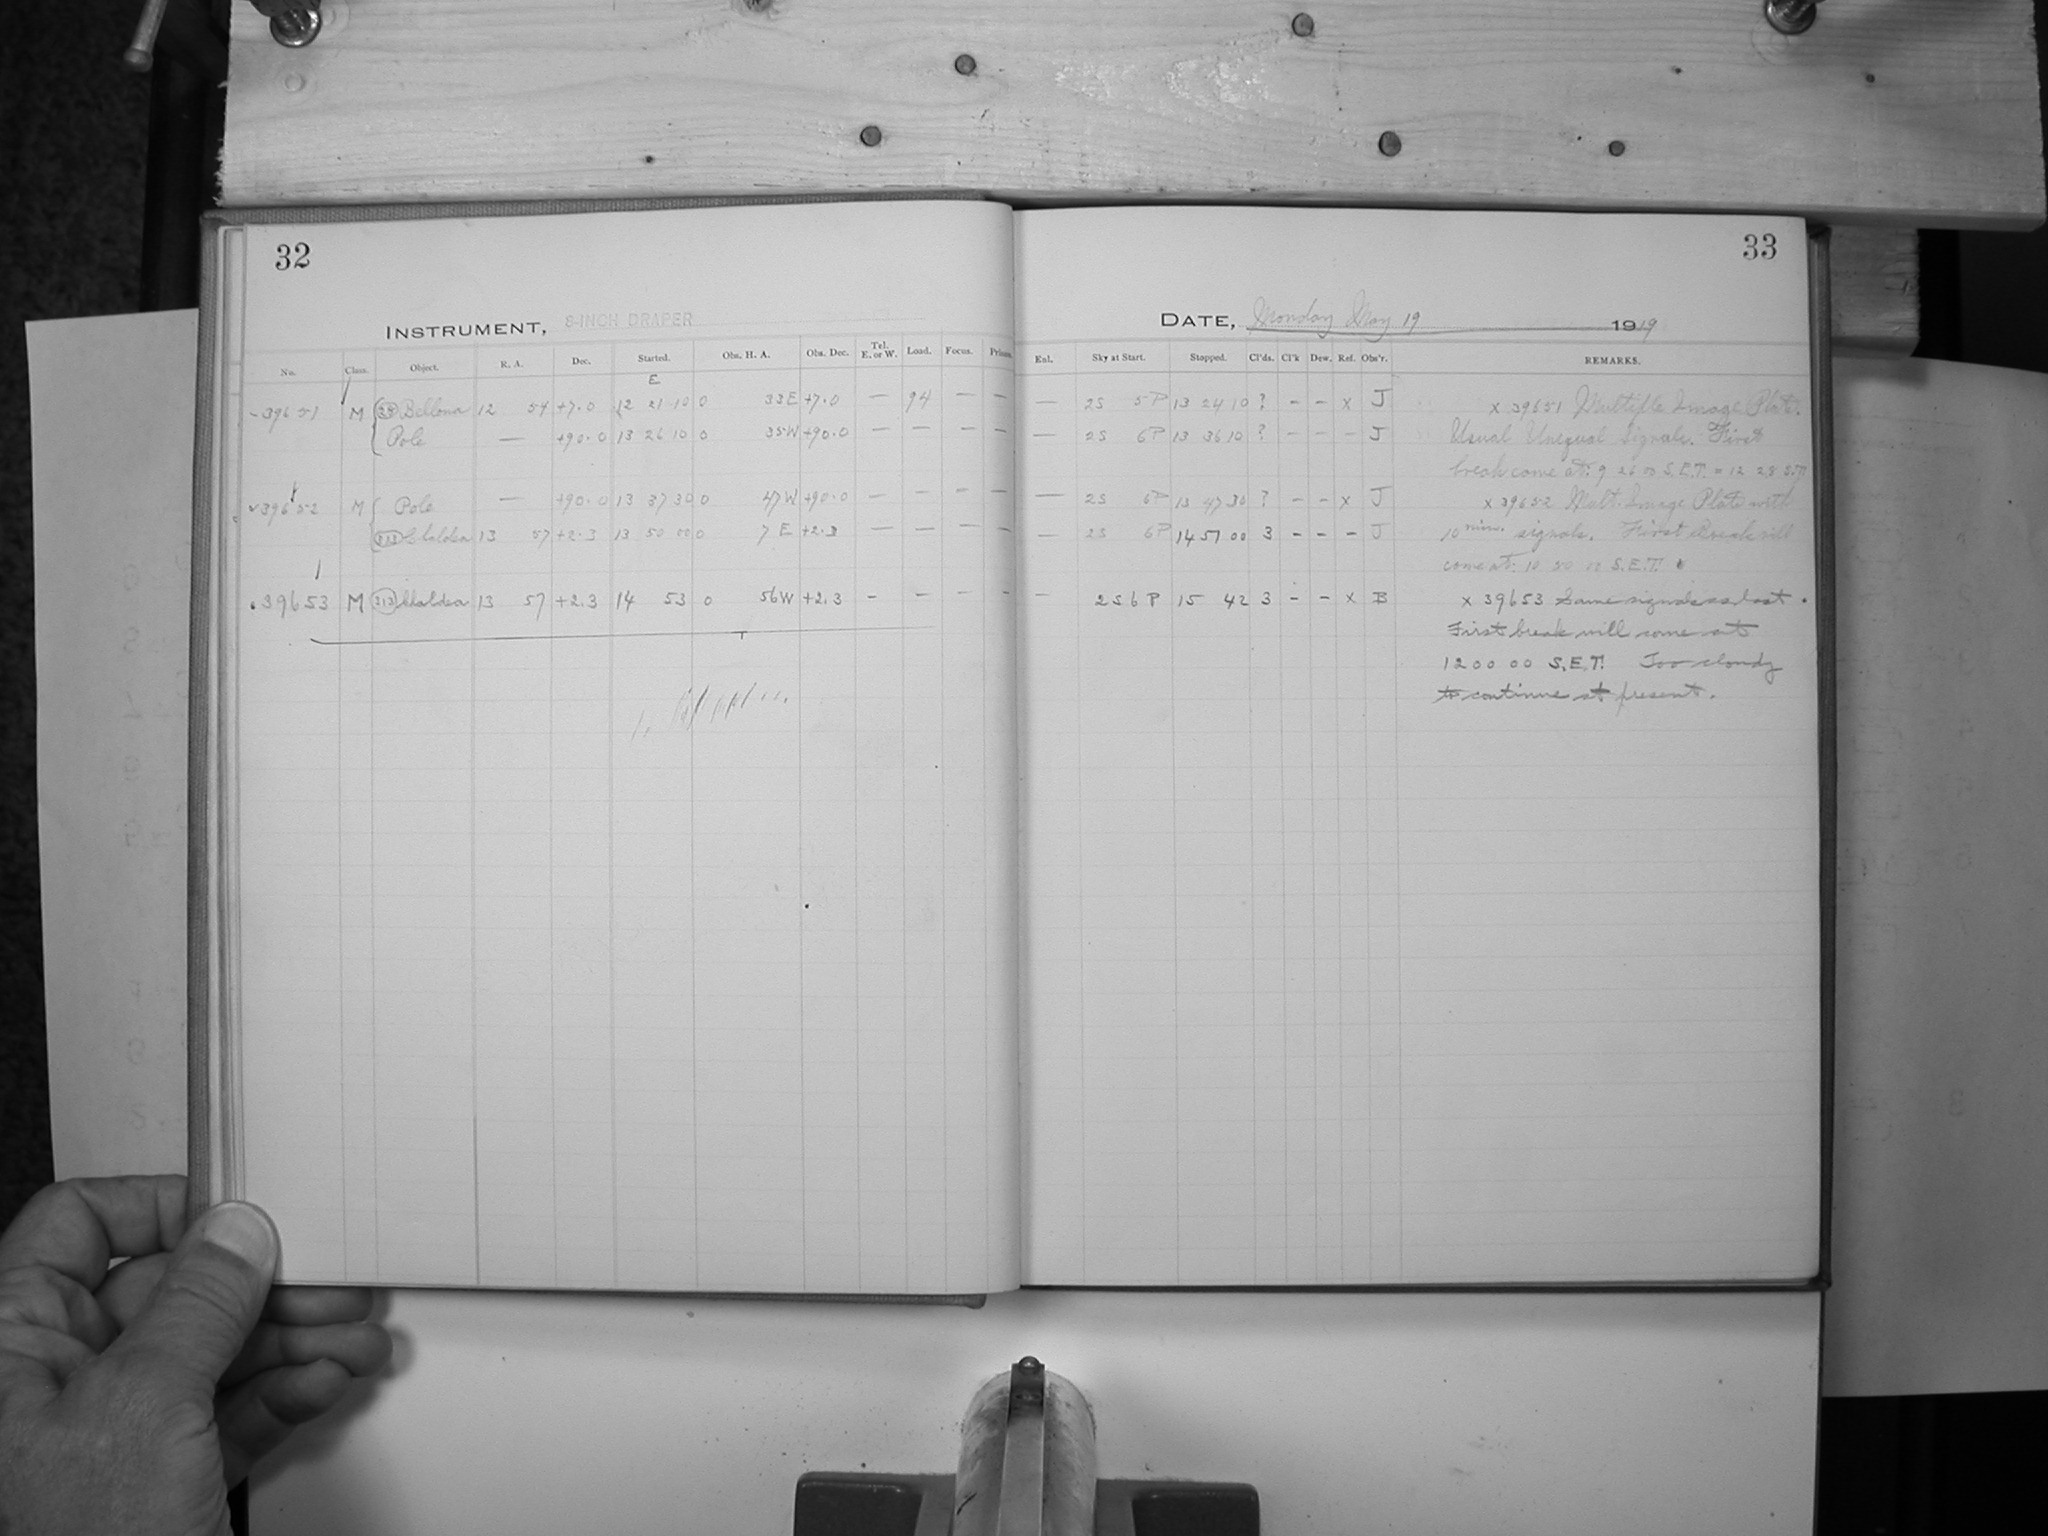 32
33
INSTRUMENT, 8-INCH DRAPER
DATE, Monday May 19 1919
No. Class. Object. R. A. Dec. Started. Obs. H. A. Obs. Dec. Tel. E. or W. Load. Focus. Prism. Enl. Sky at Start. Stopped. Cl'ds. Cl'k Dew. Ref. Obs'r. REMARKS.
E
39651 M (28) Bellona 12 54 +7.0 12 21 10 0 33E +7.0 — 94 — — — 2S 5P 13 24 10 ? – – x J x 39651 Multiple Image Plate.
Pole — +90.0 13 26 10 0 35W +90.0 — — — — — 2S 6P 13 36 10 ? – – – J Usual Unequal Signals. First
break come at: 9 26 00 S.E.T. = 12 28 S.T.
39652 M Pole — +90.0 13 37 30 0 47W +90.0 — — — — — 2S 6P 13 47 30 ? – – x J x 39652 Mult. Image Plate with
(313) Chaldea 13 57 +2.3 13 50 00 0 7 E +2.3 — — — — — 2S 6P 14 51 00 3 – – – J 10 min. signals. First Break will
come at: 10 50 00 S.E.T.
39653 M (313) Chaldea 13 57 +2.3 14 53 0 56W +2.3 – – – – – 2S 6P 15 42 3 – – x B x 39653 Same signals as last.
First break will come at
12 00 00 S.E.T. Too cloudy
to continue at present.